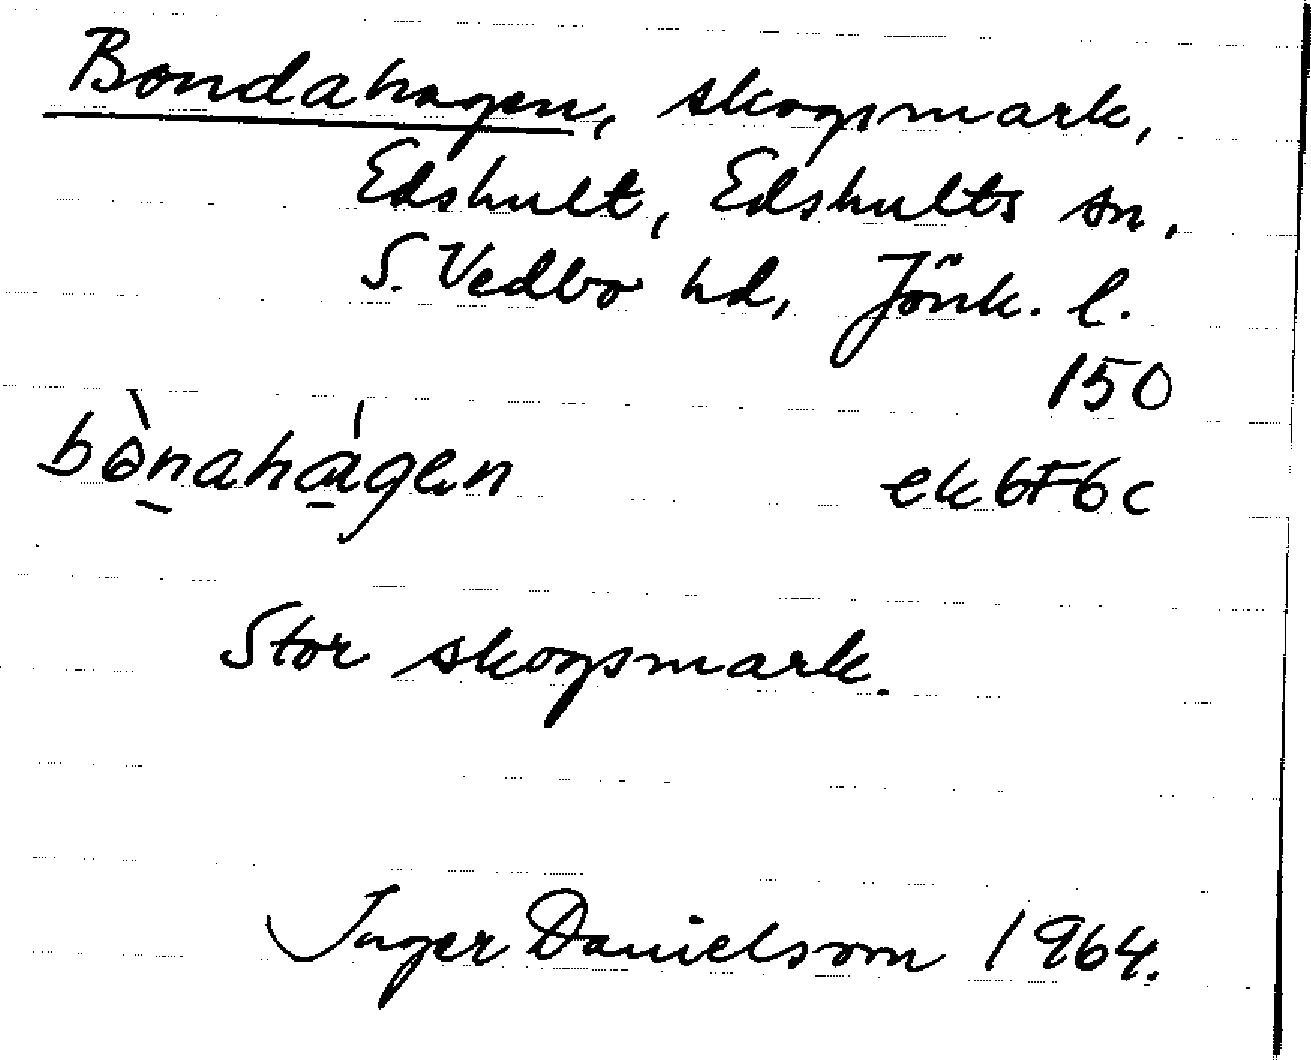 Bondahagen, skogsmark,
Edshult, Edshults sn,
S. Vedbo hd, Jönk. l.
150
bònahágen ek6F6c
Stor skogsmark.
Inger Danielsson 1964.